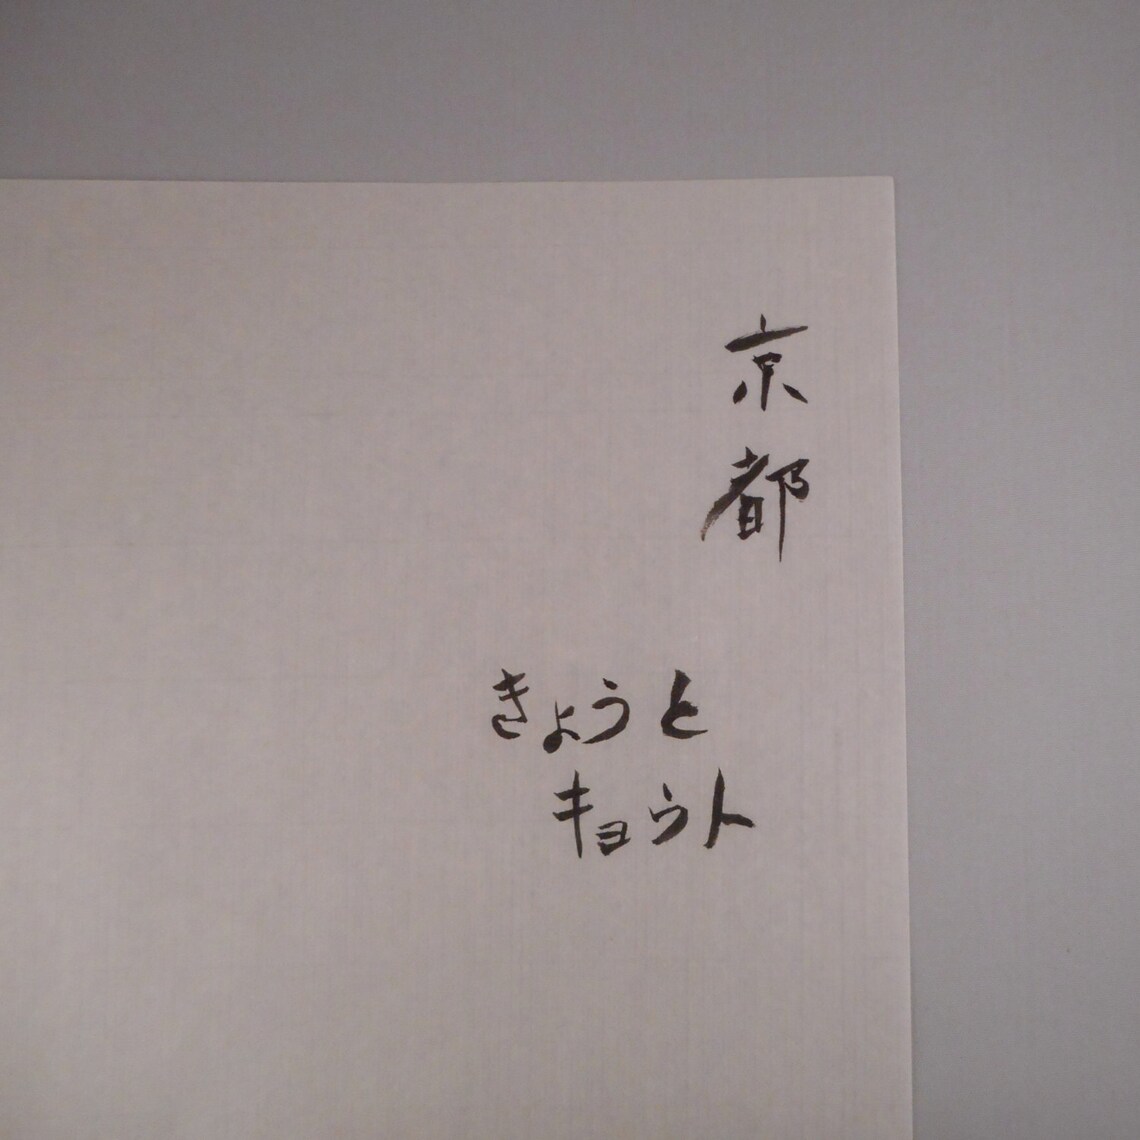 京都
きょうと
キョウト